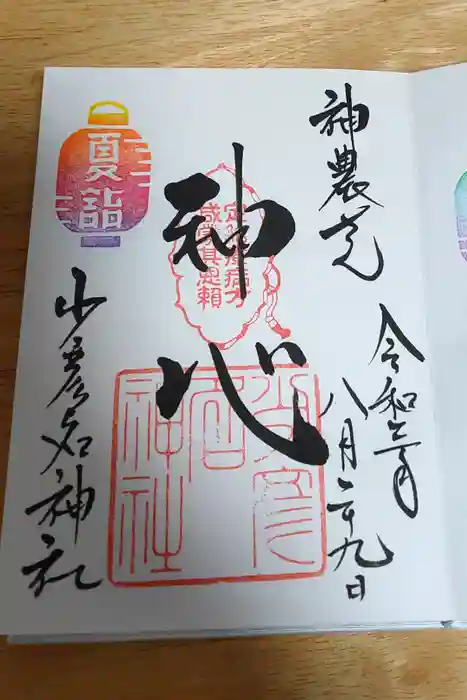 神農
令和六年
八月二十九日
神心
夏詣
少彦名神社
少彦名神社